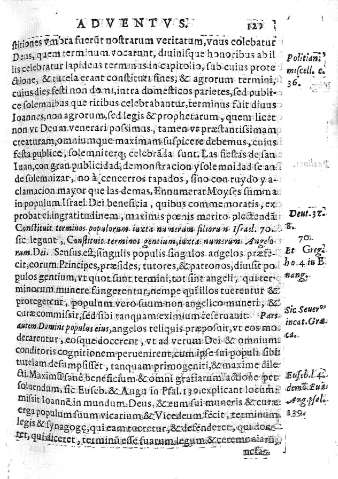 ADVENTVS. 121
stitiones vmbra fuerũt nostrarum veritatum, vnus colebatur
Deus, quem terminum vocarunt, diuinisque honoribus ab il
lis celebratur lapideus terminus in capitolio, sub cuius prote
ctione, & tutela erant constituti fines; & agrorum termini,
cuius dies festi non domi, intra domesticos parietes, sed publi-
ce solemnibus que ritibus celebrabantur, terminus fuit diuus
Ioannes, non agrorum, sed legis & prophetarum, quem licet
non vt Deum venerari possimus, tamen vt præstantissimam
creaturam, omniumque maximam suspicere debemus, cuius
festa publice, solemniterq; celebrãda sunt. Las fiestas de san
Iuan, con gran publicidad, demonstracion y solemnidad se an
de solemnizar, no à cencerros tapados, sino con ruydo y a-
clamacion mayor que las demas. Ennumerat Moyses summa
in populum Israel. Dei beneficia, quibus commemoratis, ex
probat ei ingratitudinem, maximis pœnis merito plectendã
Constituit terminos populorum iuxta numerum filiorum Israel. 70.
sic legunt, Constituit terminos gentium iuxta numerum Angelo-
rum Dei. Sensus est, singulis populis singulos angelos præfe-
cit, eorum Principes, præsides, tutores, & patronos, diuisit po-
pulos gentium, vt quot sunt termini, tot sint angeli, qui ter-
minorum munere fungerentur, nempe qui illos tuerentur &
protegerent, populum vero suum non angelico muneri, &
curæ commisit, sed sibi tanquam eximium censeri assumit. Pars
autem Domini populus eius, angelos reliquis præposuit, vt eos mo
derarentur, eosque docerent, vt ad verum Dei & omnium
conditoris cognitionem peruenirent, cum ipse sui populi sibi
tutelam desumpsisset, tanquam primogeniti, & maxime dile
cti. Maximũ sane beneficium & omni gratiarum actione per-
soluendum, sic Euseb. & Augu in Psal. 139. explicant locum.
misit Ioannẽ in mundum Deus, & eum sui muneris & curæ
erga populum suum vicarium & Vicedeum fecit, terminum
legis & synagogæ, qui eam tueretur, & defenderet, qui doce
ret, qui diceret, terminũ esse suarum legum & ceremoniarũ,
Politian.
miscell. c.
36.
Deut. 32.
8.
70.
Et Greg.
ho. 4 in E
uang.
Sic Seuer
in cat. Græ
ca.
Euseb. l. 4.
Aug. psal.
139.